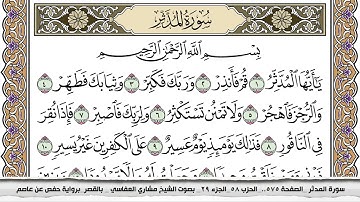 سورة المدثر
بِسْمِ اللَّهِ الرَّحْمَٰنِ الرَّحِيمِ
يَٰٓأَيُّهَا ٱلْمُدَّثِّرُ ١ قُمْ فَأَنذِرْ ٢ وَرَبَّكَ فَكَبِّرْ ٣ وَثِيَابَكَ فَطَهِّرْ ٤
وَٱلرُّجْزَ فَٱهْجُرْ ٥ وَلَا تَمْنُن تَسْتَكْثِرُ ٦ وَلِرَبِّكَ فَٱصْبِرْ ٧ فَإِذَا نُقِرَ
فِى ٱلنَّاقُورِ ٨ فَذَٰلِكَ يَوْمَئِذٍ يَوْمٌ عَسِيرٌ ٩ عَلَى ٱلْكَٰفِرِينَ غَيْرُ يَسِيرٍ ١٠
سورة المدثر الصفحة ٥٧٥.. الحزب ٥٨ الجزء ٢٩ بصوت الشيخ مشاري العفاسي بالقصر برواية حفص عن عاصم